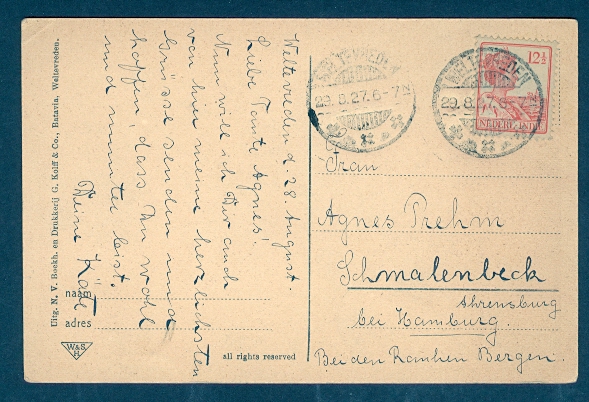 Weltevreden d. 28. August.
Liebe Tante Agnes!
Nun will ich Dir auch
von hier meine herzlichsten
Grüsse senden und
hoffen, dass Du wohl
und munter bist.
Deine Käte
naam
adres
Uitg. N. V. Boekh. en Drukkerij G. Kolff & Co., Batavia, Weltevreden.
W&S.
H
all rights reserved
WELTEVREDEN
29.8.27.6-7N
WELTEVREDEN
29.8.
12½
NEDERL. INDIË
Frau
Agnes Prehm
Schmalenbeck
Ahrensburg
bei Hamburg.
Bei den Bergen.